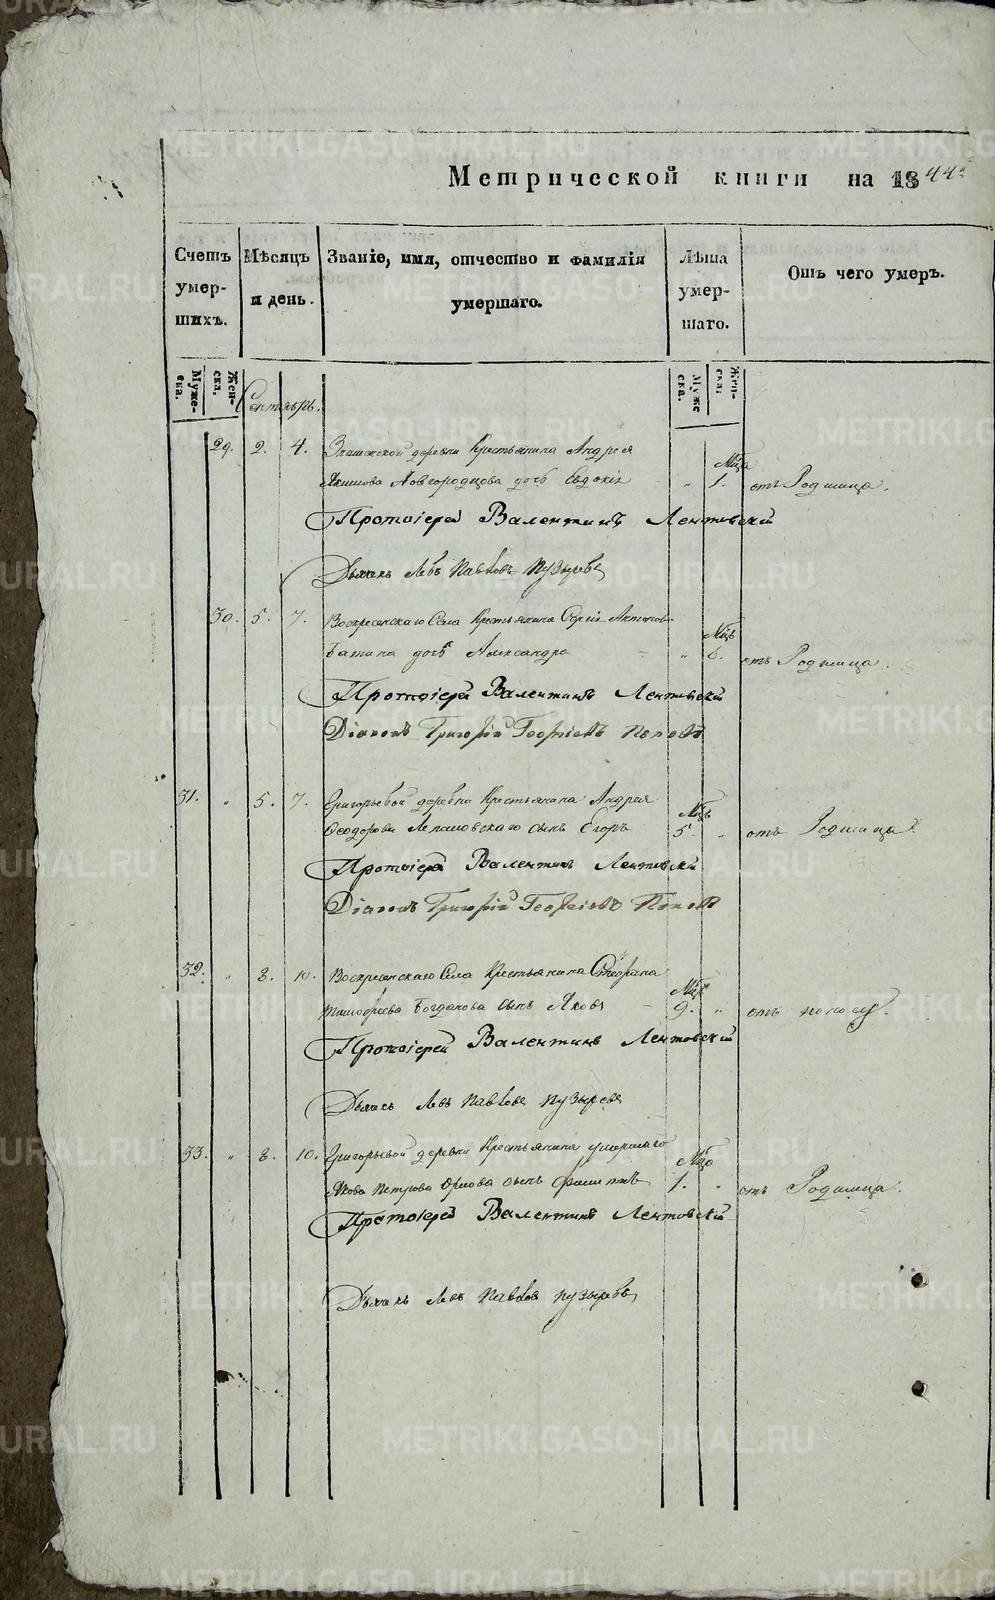 Метрической книги на 1844й
Счетъ умер- шихъ.
Мѣсяцъ и день.
Званіе, имя, отчество и фамилія умершаго.
Лѣта умер- шаго.
Отъ чего умеръ.
Муже- ска.
Жен- ска.
Муже ска.
Жен- ска.
Сентябрь.
29. 2. 4. деревни Крестьянина Андрея Мца
Новгородцова дочь Евдокія " 1. отъ Родимца.
Протоіерей Валентинъ Лентовскій
Дьячекъ Левъ Павловъ Пузыревъ
30. 5. 7. Воскресенскаго Села Крестьянина Сергія Антонова Мцъ
Батина дочь Александра " 6. отъ Родимца.
Протоіерей Валентинъ Лентовскій
Діаконъ Григорій Георгіевъ Поповъ
31. " 5. 7. Григорьевой деревни Крестьянина Андрея Мцъ
Ѳеодорова сынъ Егоръ 5 " отъ Родимца.
Протоіерей Валентинъ Лентовскій
Діаконъ Григорій Георгіевъ Поповъ
32. " 8. 10. Воскресенскаго Села Крестьянина Стефана Мцъ
Тимофеева Богданова сынъ Яковъ 9. " отъ поносу.
Протоіерей Валентинъ Лентовскій
Дьячекъ Левъ Павловъ Пузыревъ
33. " 8. 10. Григорьевой деревни Крестьянина умершаго Мца
Якова Петрова Орлова сынъ Филиппъ 1. " отъ Родимца.
Протоіерей Валентинъ Лентовскій
Дьячекъ Левъ Павловъ Пузыревъ
METRIKI.GASO-URAL.RU